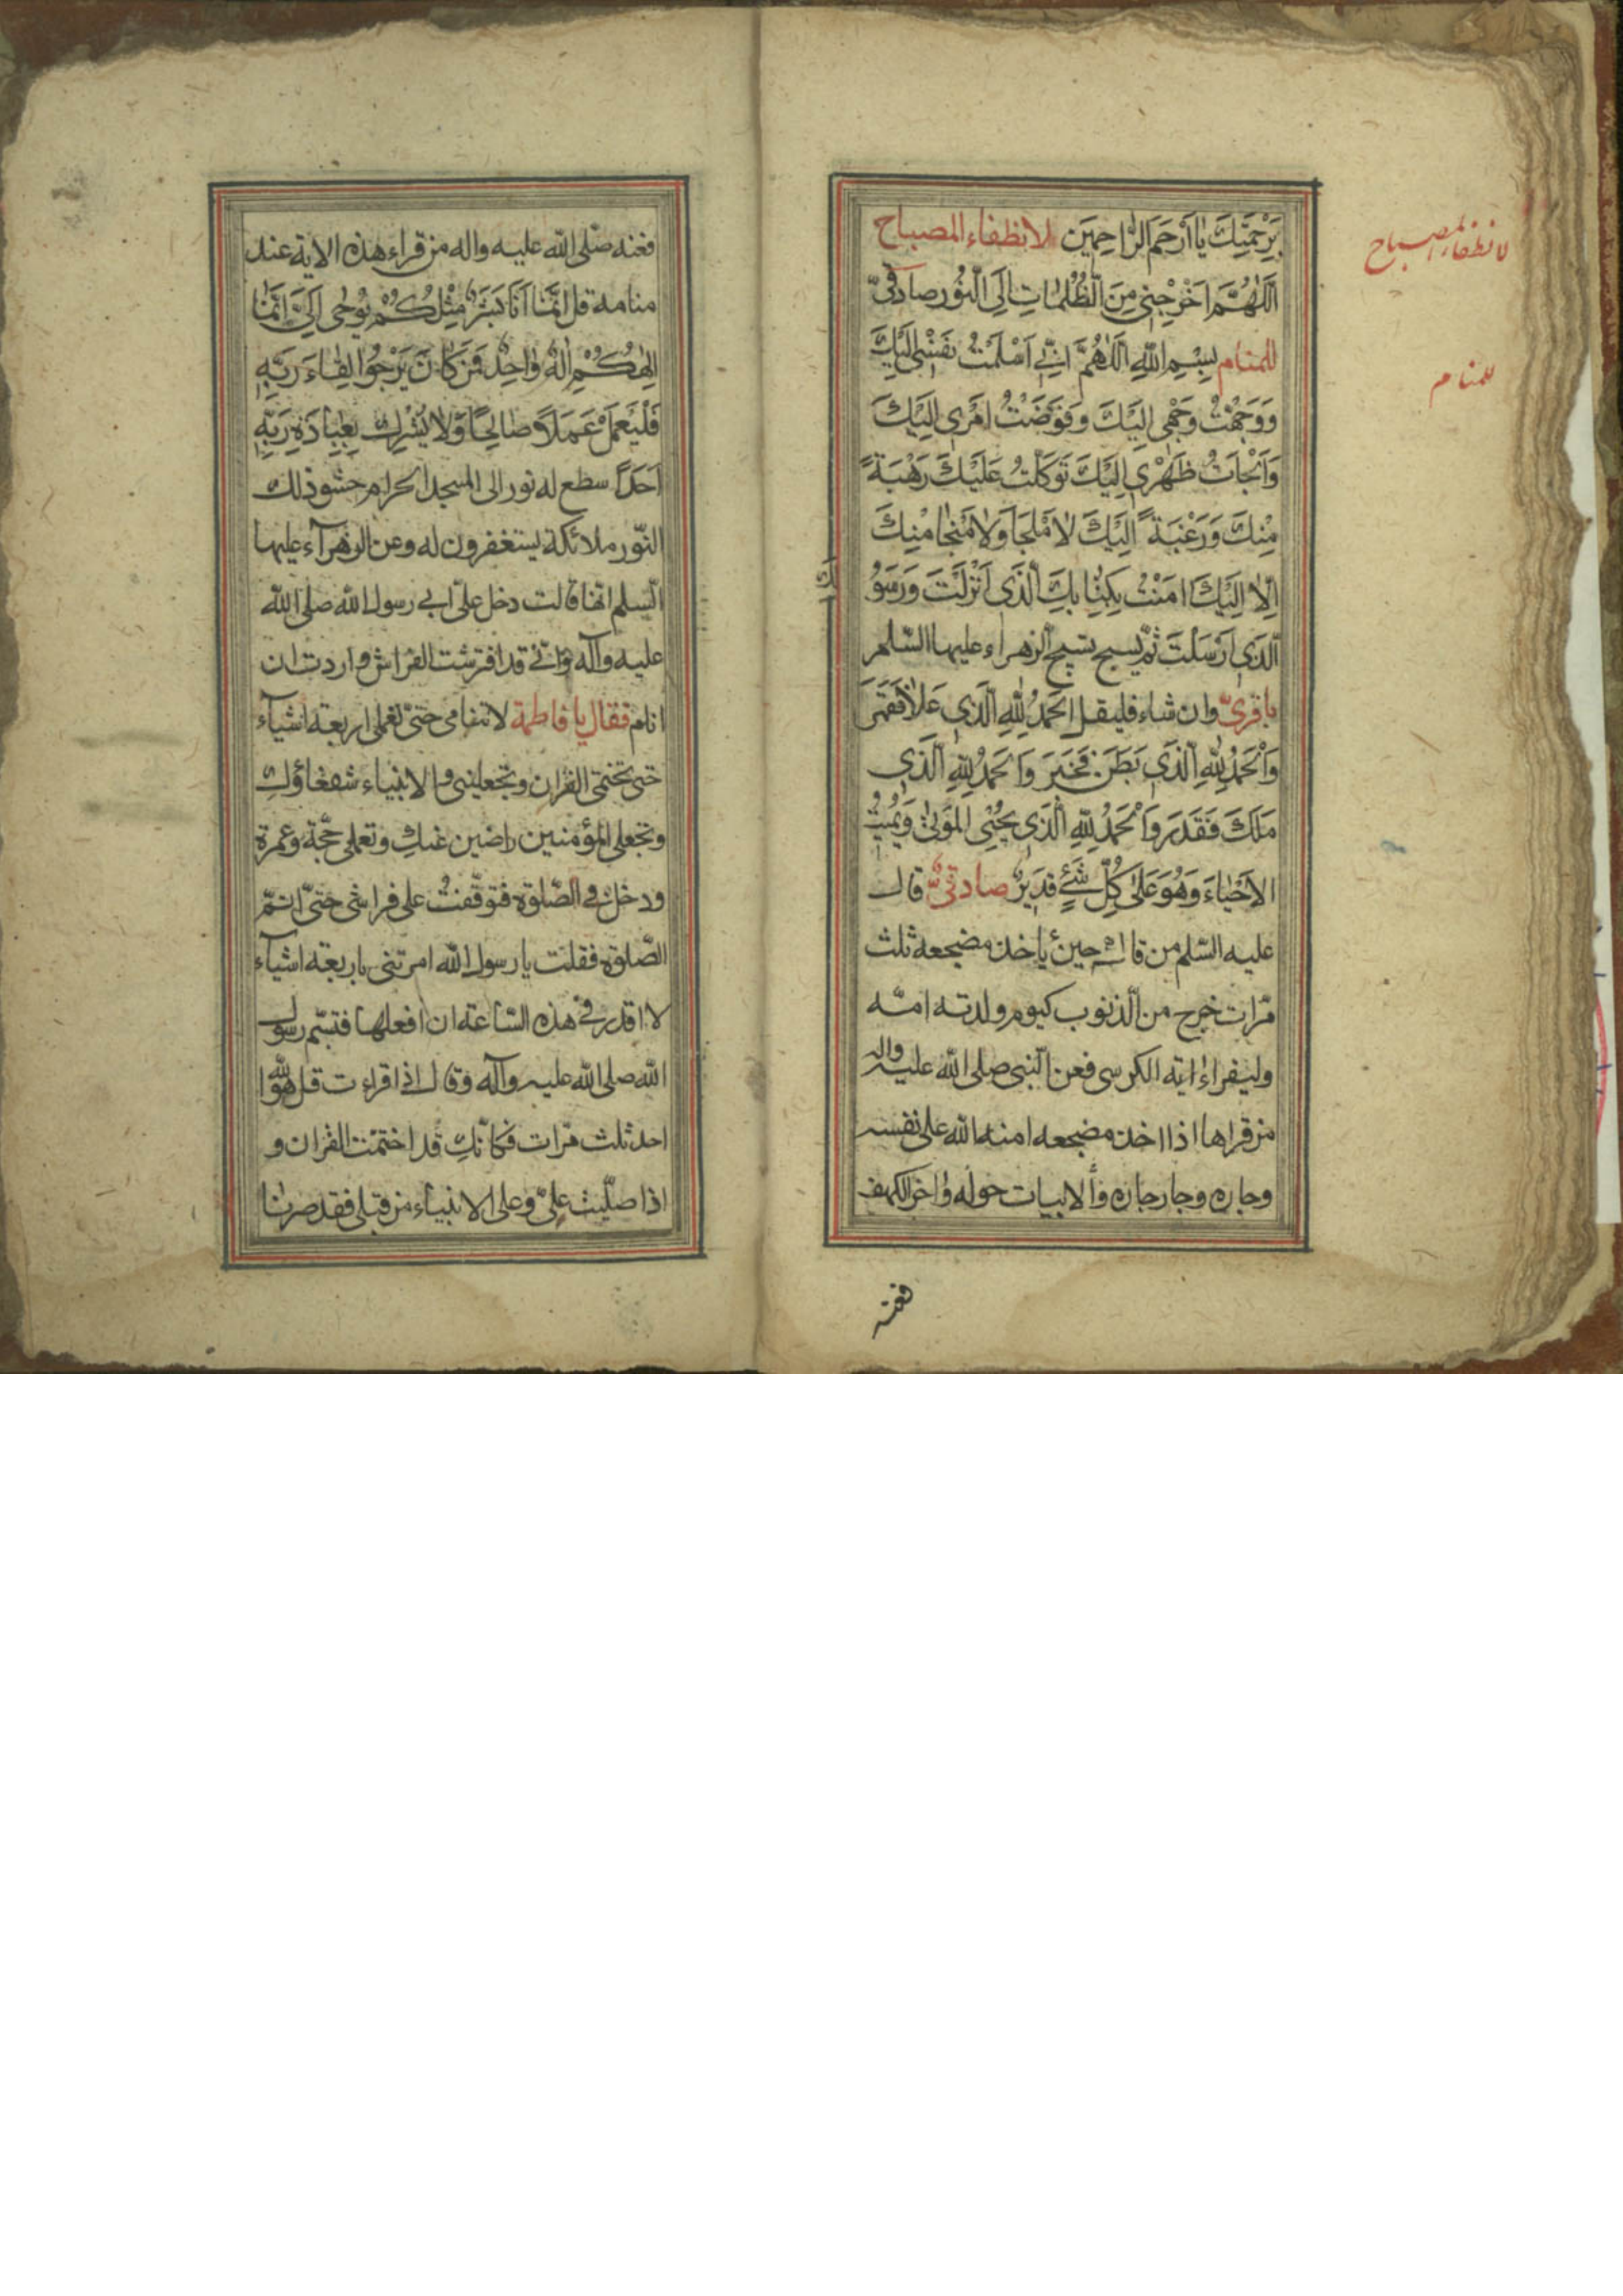 بِرَحْمَتِكَ يَا أَرْحَمَ الرَّاحِمِينَ لانطفاء المصباح
اَللّٰهُمَّ اَخْرِجْنِي مِنَ الظُّلُمَاتِ اِلَى النُّورِ صادقیّ
للمنام بِسْمِ اللّٰهِ اَللّٰهُمَّ اِنِّي اَسْلَمْتُ نَفْسِي اِلَيْكَ
وَوَجَّهْتُ وَجْهِي اِلَيْكَ وَفَوَّضْتُ اَمْرِي اِلَيْكَ
وَاَلْجَأْتُ ظَهْرِي اِلَيْكَ تَوَكَّلْتُ عَلَيْكَ رَهْبَةً
مِنْكَ وَرَغْبَةً اِلَيْكَ لَا مَلْجَأَ وَلَا مَنْجَا مِنْكَ
اِلَّا اِلَيْكَ امَنْتُ بِكِتَابِكَ الَّذِي اَنْزَلْتَ وَرَسُو
الَّذِي اَرْسَلْتَ ثمّ يسبح تسبيح الزهراء عليها السّلم
باقریّ وان شاء فليقل اَلْحَمْدُ لِلّٰهِ الَّذِي عَلَا فَقَهَرَ
وَالْحَمْدُ لِلّٰهِ الَّذِي بَطَنَ فَخَبَرَ وَالْحَمْدُ لِلّٰهِ الَّذِي
مَلَكَ فَقَدَرَ وَالْحَمْدُ لِلّٰهِ الَّذِي يُحْيِي الْمَوْتٰى وَيُمِيتُ
الاَحْيَاءَ وَهُوَ عَلٰى كُلِّ شَيْءٍ قَدِيرٌ صادقیٌّ قال
عليه السّلم من قاله حين ياخذ مضجعه ثلث
مرّات خرج من الذنوب كيوم ولدته امّه
وليقراء اية الكرسی فعن النبی صلی الله عليه واله
من قراها اذا اخذ مضجعه امنه الله علی نفسه
وجاره وجار جاره والابيات حوله واخر الكهف
فعنه
لانطفاء المصباح
للمنام
فعنه صلّی الله عليه واله من قراء هذه الاية عند
منامه قل اِنَّمَا اَنَا بَشَرٌ مِثْلُكُمْ يُوحٰى اِلَيَّ اَنَّمَا
اِلٰهُكُمْ اِلٰهٌ وَاحِدٌ فَمَنْ كَانَ يَرْجُوا لِقَاءَ رَبِّهِ
فَلْيَعْمَلْ عَمَلًا صَالِحًا وَلَا يُشْرِكْ بِعِبَادَةِ رَبِّهِ
اَحَدًا سطع له نور الی المسجد الحرام حشو ذلك
النّور ملائكة يستغفرون له وعن الزهرآء عليها
السّلم انها قالت دخل علیّ ابی رسول الله صلی الله
عليه وآله وانّی قد افترشت الفراش واردت ان
انام فقال يا فاطمة لا تنامی حتّی تعملی اربعة اشيآء
حتی تختمی القران وتجعلينی والانبياء شفعاؤك
وتجعلی المؤمنين راضين عنك وتعملی حجّة وعمرة
ودخل فی الصّلوة فتوقّفت علی فراشی حتّی اتمّ
الصّلوة فقلت يا رسول الله امرتنی باربعة اشيآء
لا اقدر فی هذه السّاعة ان افعلها فتبسّم رسول
الله صلی الله عليه وآله وقال اذا قراءت قل هو الله
احد ثلث مرّات فكانّك قد اختمت القران و
اذا صلّيت علیّ وعلی الانبياء من قبلی فقد صرنا